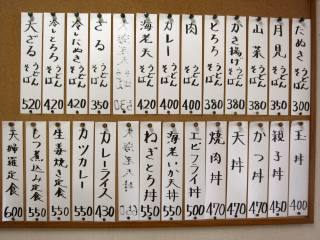 たぬき うどんそば 300
月見 うどんそば 350
山菜 うどんそば 380
かき揚げ うどんそば 380
とろろ うどんそば 380
肉 うどんそば 400
カレー うどんそば 400
海老天 うどんそば 420
ざる うどんそば 350
冷したぬき うどんそば 420
冷しとろろ うどんそば 420
天ざる うどんそば 520
玉丼 400
親子丼 450
かつ丼 470
天丼 470
焼肉丼 470
エビフライ丼 500
海老いか天丼 550
ねぎとろ丼 550
カレーライス 430
カツカレー 550
生姜焼き定食 550
もつ煮込み定食 550
天婦羅定食 600